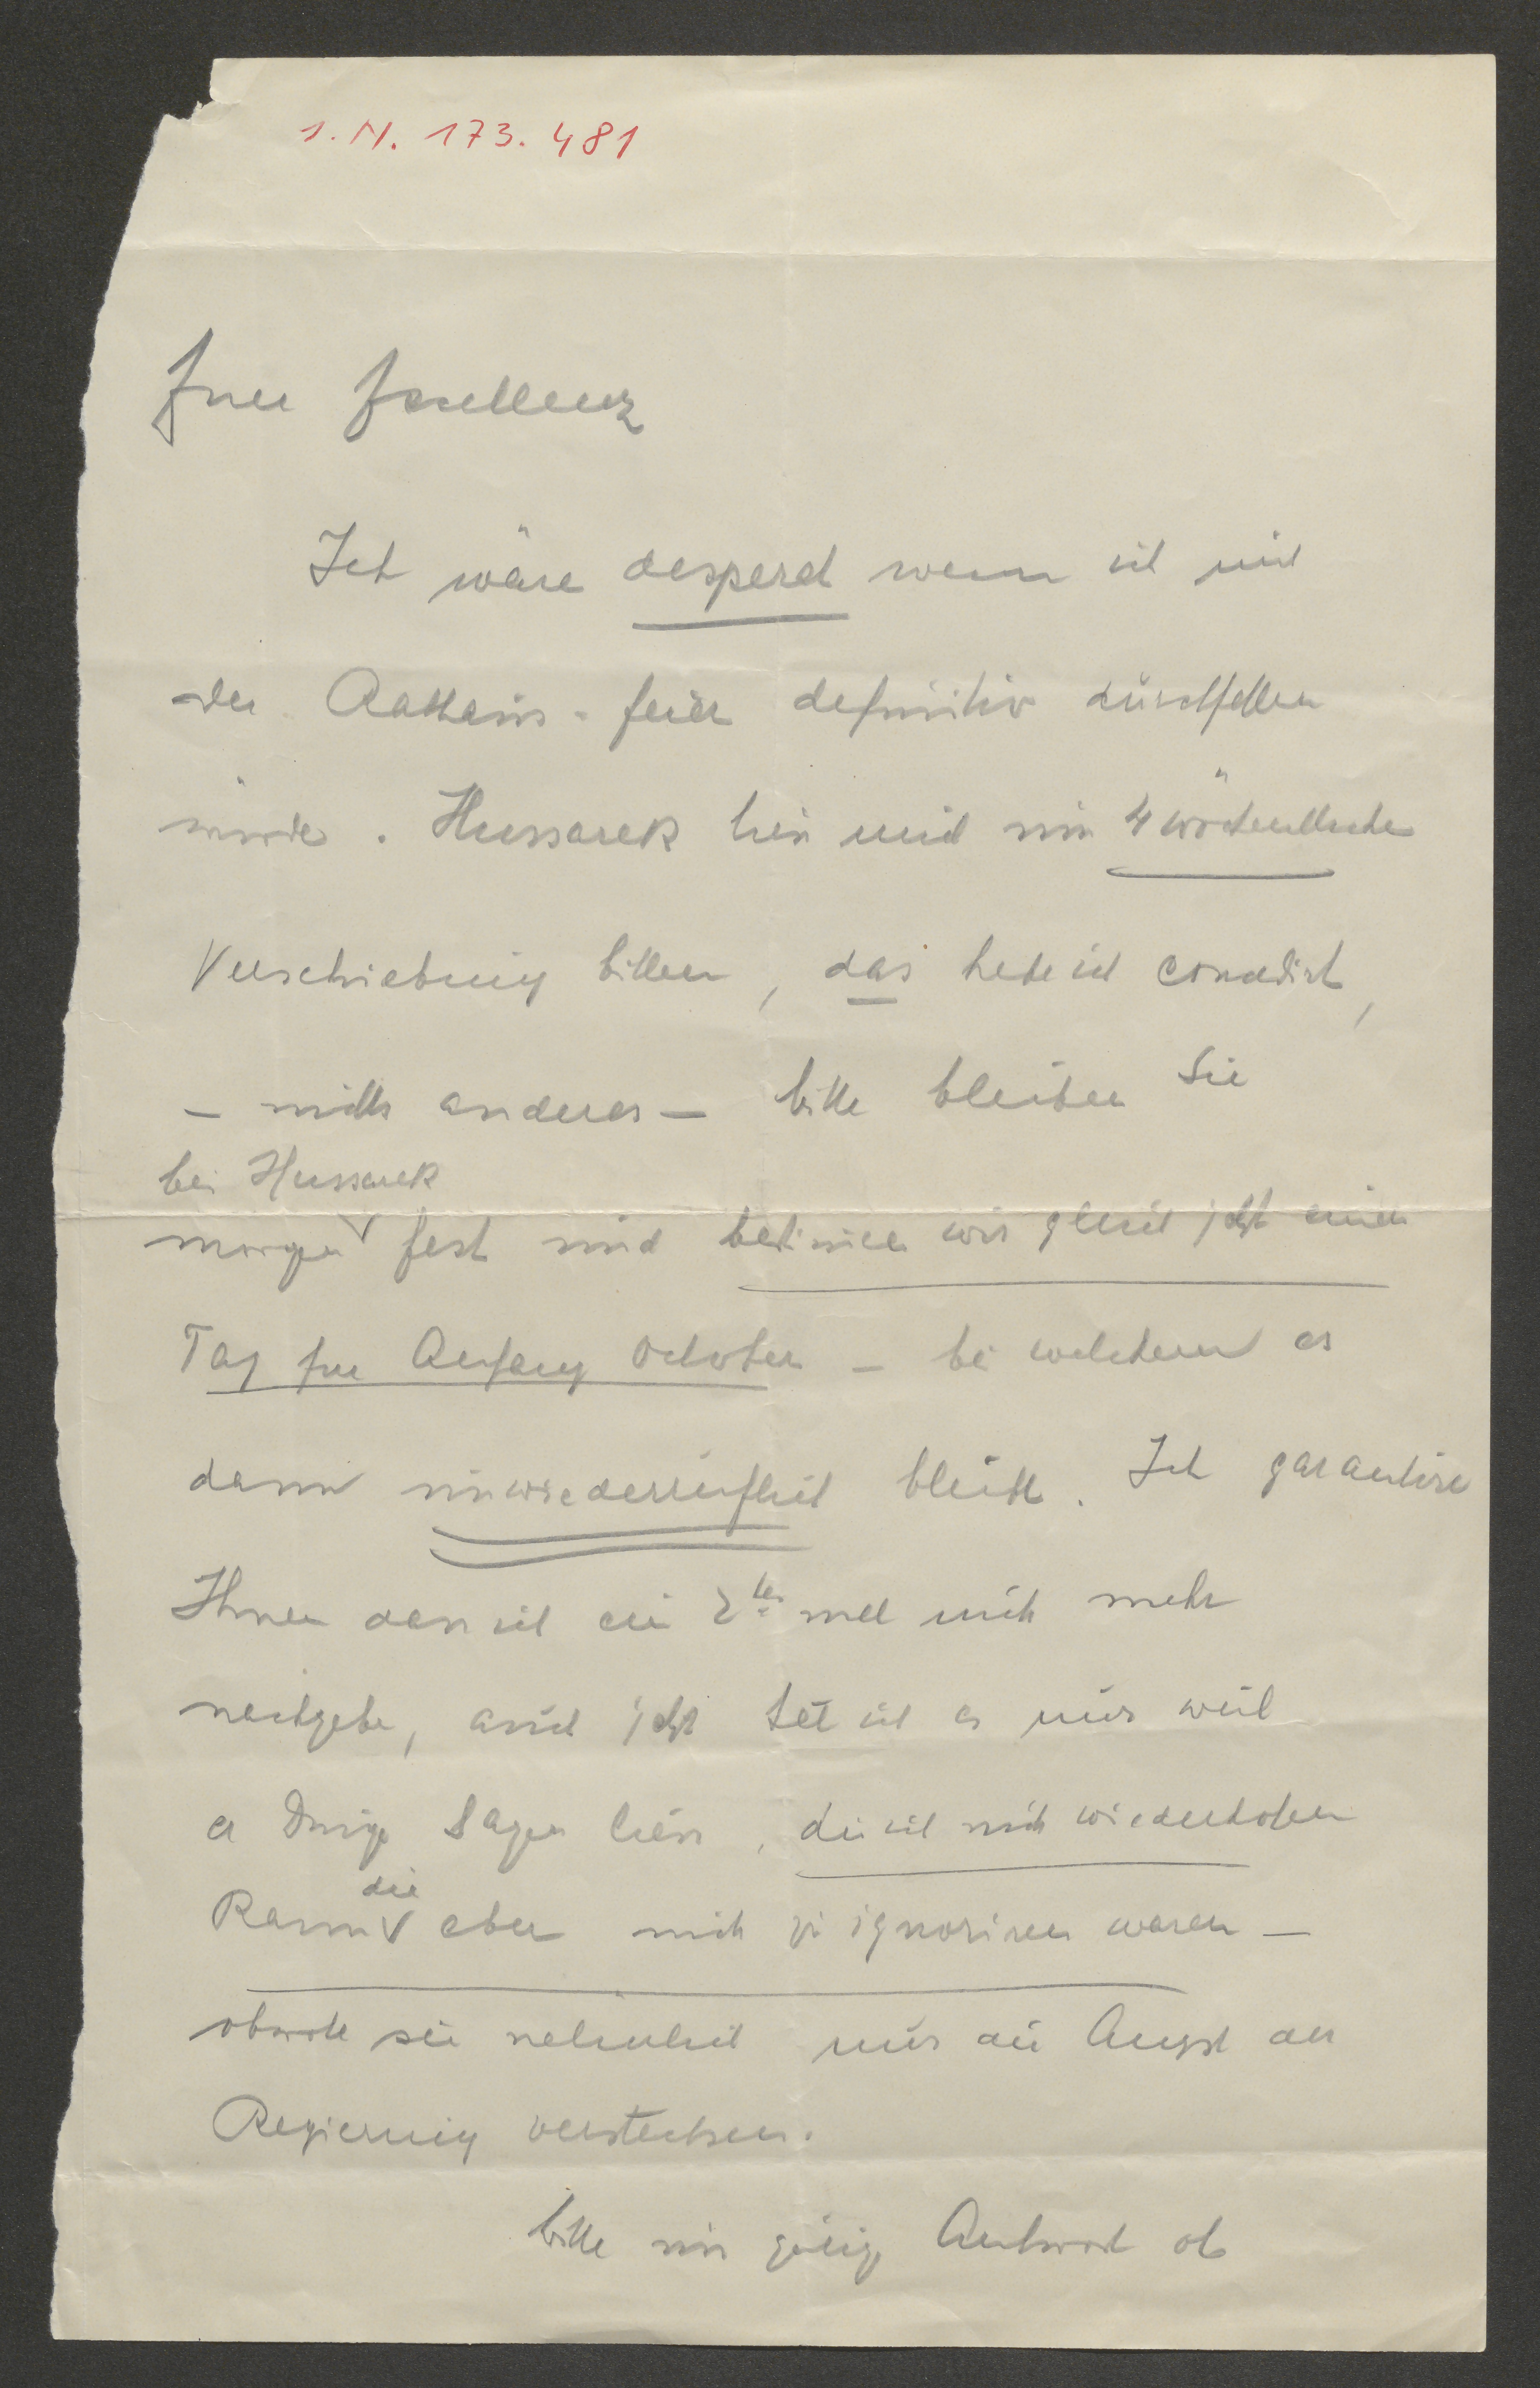 I. N. 173.481
Euer Exzellenz
Ich wäre desperat wenn ich mit
der Rathaus-feier definitiv durchfallen
würde. Hussarek liess mich um 4 wöchentliche
Verschiebung bitten, das habe ich concedirt,
— nichts anderes — bitte bleiben Sie
bei Hussarek
morgen fest und bestimmen wir gleich jetzt einen
Tag für Anfang October — bei welchem es
dann unwiederruflich bleibt. Ich garantire
Ihnen dass ich ein 2tes mal nicht mehr
nachgebe, auch jetzt tat ich es nur weil
er Dinge sagen liess, die ich nicht wiederholen
kann die aber nicht zu ignoriren waren —
obwohl sie natürlich nur die Angst der
Regierung verstecken.
bitte um gütige Antwort ob